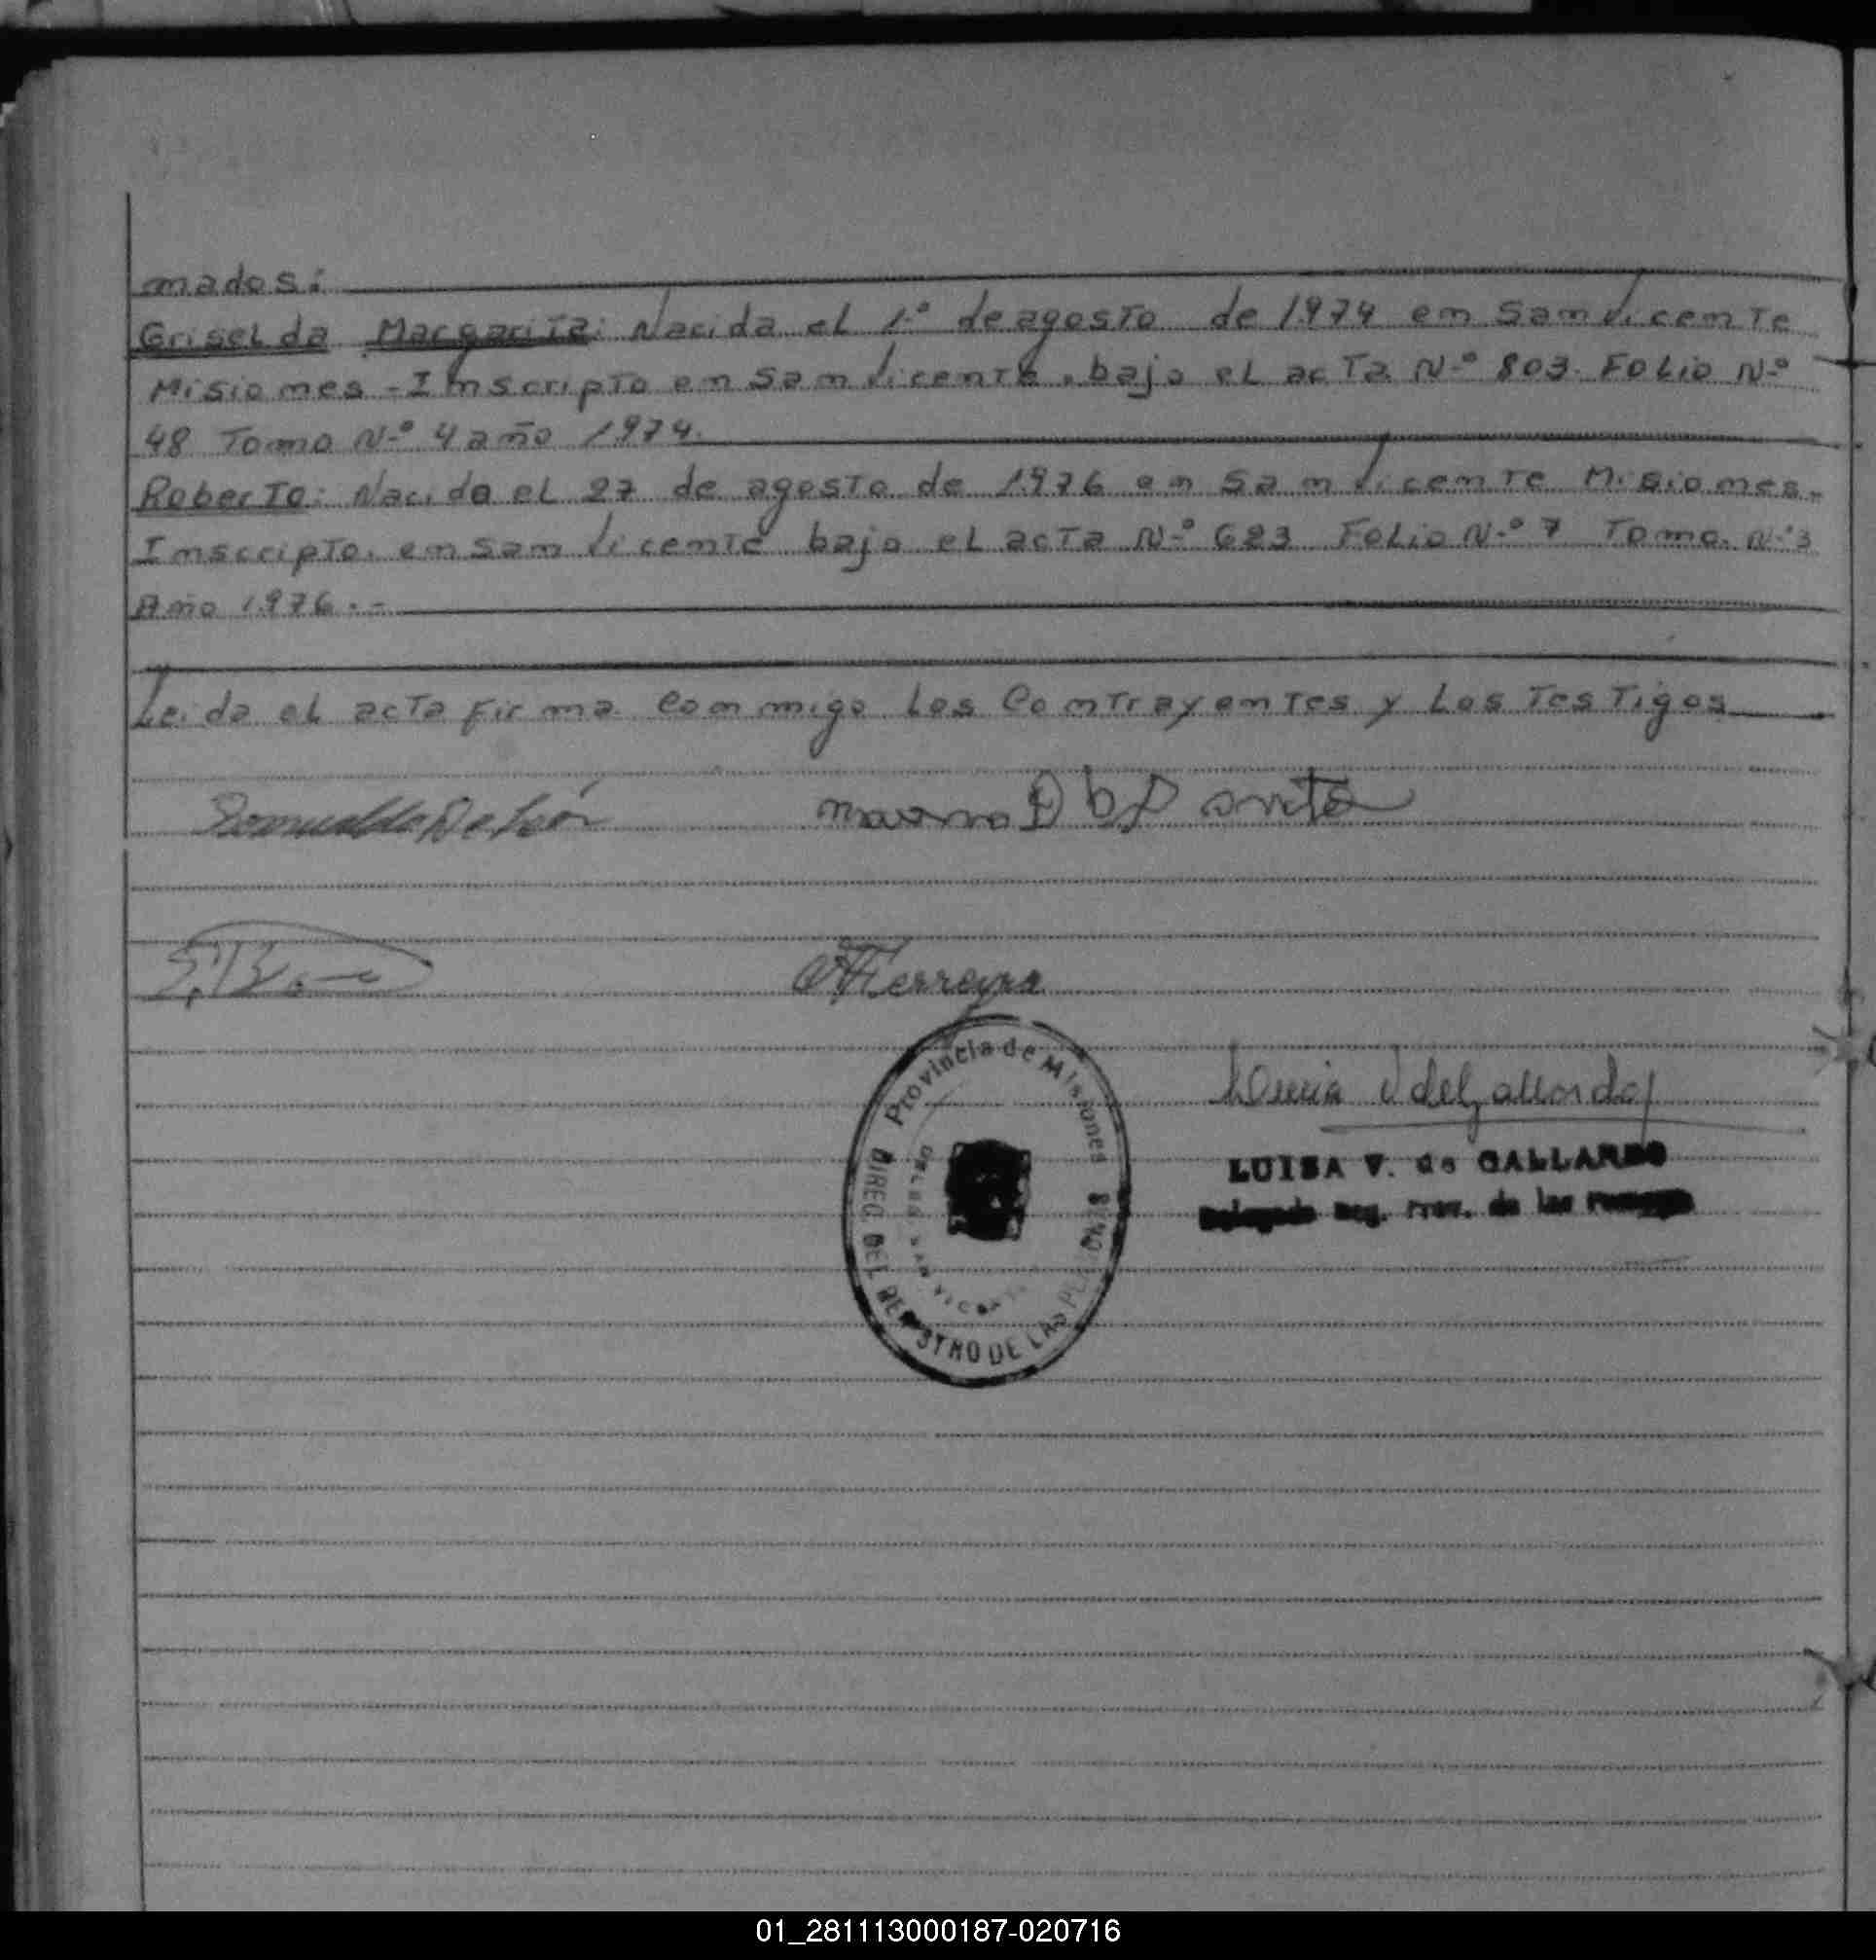 mados:
Griselda Margarita: Nacida el 1º de agosto de 1974 en San Vicente
Misiones - Inscripto en San Vicente, bajo el acta Nº 803. Folio Nº
48 Tomo Nº 4 año 1974.
Roberto: Nacido el 27 de agosto de 1976 en San Vicente Misiones.
Inscripto. en San Vicente bajo el acta Nº 623 Folio Nº 7 Tomo. Nº 3
Año 1976.-
Leido el acta firma conmigo los Contrayentes y los Testigos
Romualdo De León
Ferreyra
Provincia de Misiones
DIREC. DEL REGISTRO DE LAS
LUISA V. de GALLARDO
Delegada Reg. Prov. de las Personas
01_281113000187-020716